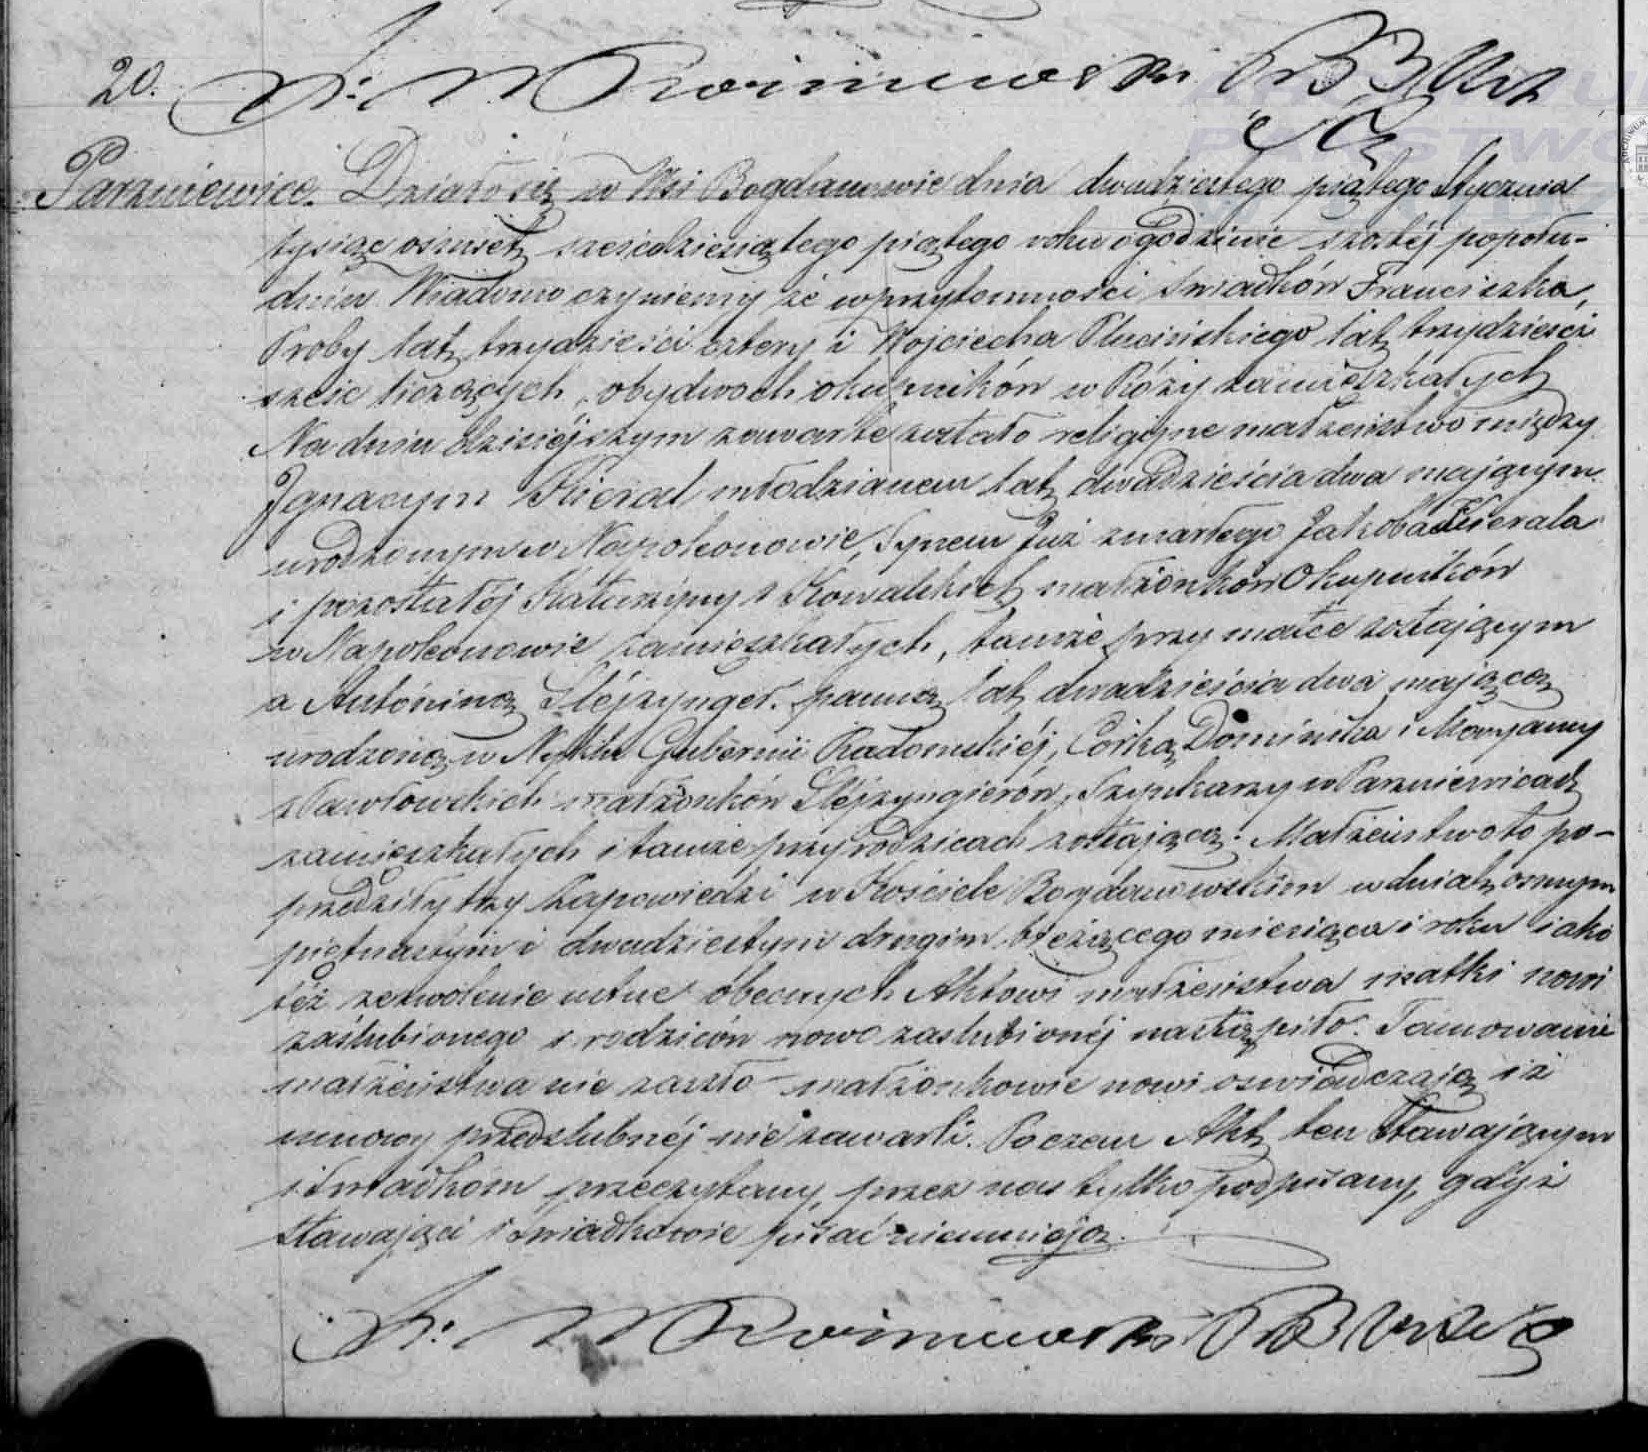 20.
Parzniewice. Działo się w Wsi Bogdanowie dnia dwudziestego piątego Stycznia
tysiąc osmset sześćdziesiątego piątego roku o godzinie szostéj popołu-
dniu Wiadomo czyniemy że w przytomności Swiadków Franciszka,
Proby lat trzydzieści cztery i Wojciecha Plucińskiego lat trzydzieści
sześc liczących, obydwoch okupników w Róży zamieszkałych
Na dniu dzisiéjszym zawarte zostało religijne małżeństwo między
Ignacym Kieral młodzianem lat dwadzieścia dwa mającym
urodzonym w Napoleonowie, Synem Już zmarłego Jakoba Kierala
i pozostałéj Katarzyny z Kowalskich małżonków Okupników
w Napoleonowie zamieszkałych, tamże przy matce zostającym
a Antoniną Sléjzynger. panną lat dwadzieścia dwa mającą
urodzoną w Gubernii Radomskiéj, Córką Dominika i Maryanny
z Pawłowskich małżonków Sléjzyngierów, Szynkarzy w Parzniewicach
zamieszkałych i tamże przy rodzicach zostającą. Małżeństwo to po-
przedziły trzy Zapowiedzi w Kościele Bogdanowskim w dniach osmym
piętnastym i dwudziestym drugim bieżącego miesiąca i roku iako
téż zezwolenie ustne obecnych Aktowi małżeństwa matki nowo
zaślubionego i rodziców nowo zaslubionéj nastąpiło. Tamowanie
małżeństwa nie zaszło małżonkowie nowi oswiadczają iż
umowy przedslubnéj nie zawarli. Poczem Akt ten Stawającym
i Swiadkom przeczytany, przez nas tylko podpisany, gdyż
Stawający i Swiadkowie pisać nieumieją.